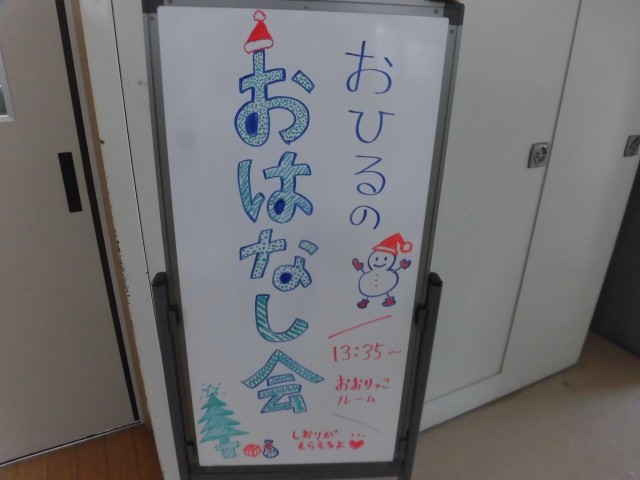 おひるの
おはなし会
13:35~
おおりっこ
ルーム
しおりが
もらえるよ